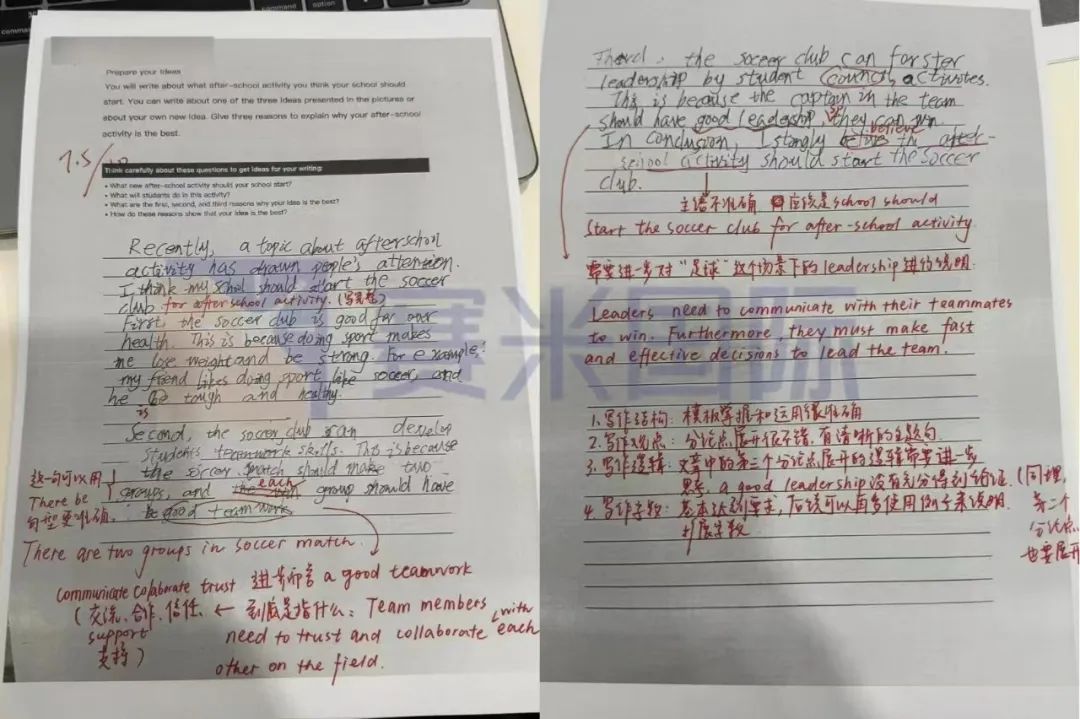 command
option
Prepare your ideas
You will write about what after-school activity you think your school should
start. You can write about one of the three ideas presented in the pictures or
about your own new idea. Give three reasons to explain why your after-school
activity is the best.
7.5/10
Think carefully about these questions to get ideas for your writing:
• What new after-school activity should your school start?
• What will students do in this activity?
• What are the first, second, and third reasons why your idea is the best?
• How do these reasons show that your idea is the best?
Recently, a topic about afterschool
activity has drawn people's attention.
I think my school should start the soccer
club. for after school activity. (写完整)
First, the soccer club is good for our
health. This is because doing sport makes
me lose weight and be strong. For example,
my friend likes doing sport like soccer, and
he be tough and healthy.
is
Second, the soccer club can develop
students teamwork skills. This is because
the soccer match should make two
groups, and each group should have
be good team work
这句可以用
There be
句型更准确.
There are two groups in soccer match.
communicate colaborate trust 进一步而言 a good teamwork
(交流、合作、信任、 ← 到底是指什么: Team members
support need to trust and collaborate with each
支持) other on the field.
Third, the soccer club can forster
leadership by student council activotes.
This is because the captain in the team
should have good leadership, they can win.
In conclusion, I stongly believe the after-
school activity should start the soccer
club.
主语不准确 应该是school should
start the soccer club for after-school activity
需要进一步对“足球”这个场景下的leadership进行说明.
Leaders need to communicate with their teammates
to win. Furthermore, they must make fast
and effective decisions to lead the team.
1.写作结构: 模板掌握和运用很准确
2.写作观点: 分论点展开很不错, 有清晰的主题句
3.写作逻辑: 文章中的第三个分论点展开的逻辑需要进一步
思考, a good leadership没有充分得到论证. (同理,
第二个
分论点
也要展开
4.写作字数: 基本达到要求, 后续可以再多使用例子来说明.
扩展字数
赛米国际